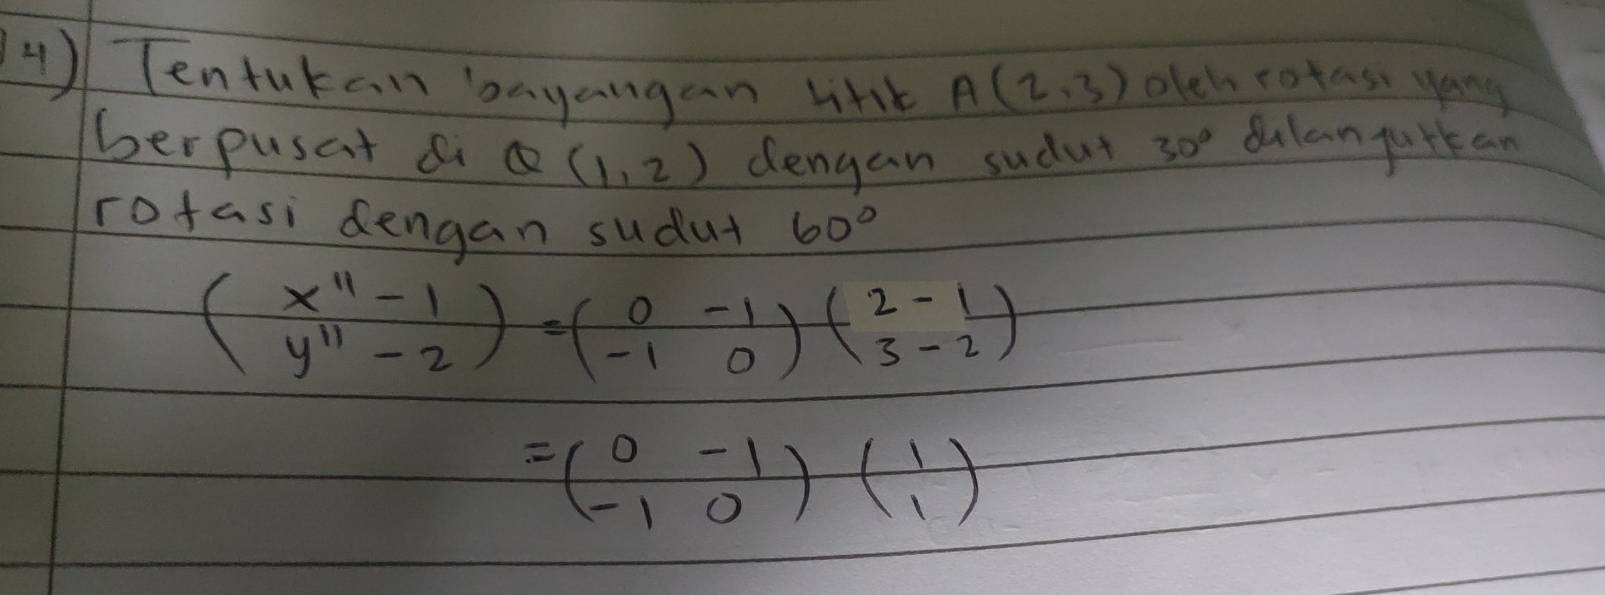 14) Tentukan bayangan titik A(2,3) oleh rotasi yang
berpusat di Q (1,2) dengan sudut 30° dilanjutkan
rotasi dengan sudut 60°
(x'' - 1 / y'' - 2) = (0 -1 / -1 0) (2 - 1 / 3 - 2)
= (0 -1 / -1 0) (1 / 1)